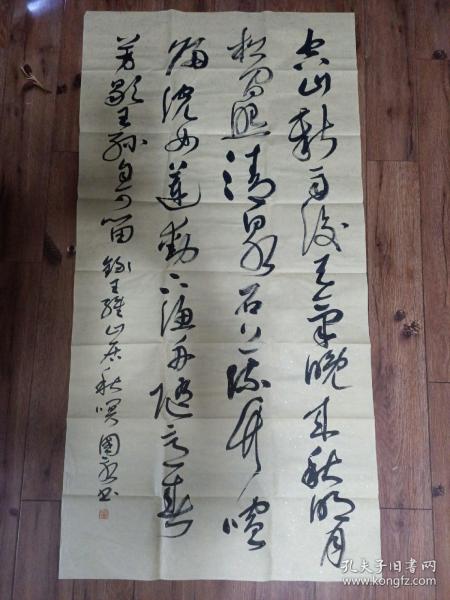 空山新雨後天氣晚來秋明月
松間照清泉石上流竹喧
歸浣女蓮動下漁舟隨意春
芳歇王孫自可留 錄王維山居秋暝 國永书
孔夫子旧书网
www.kongfz.com